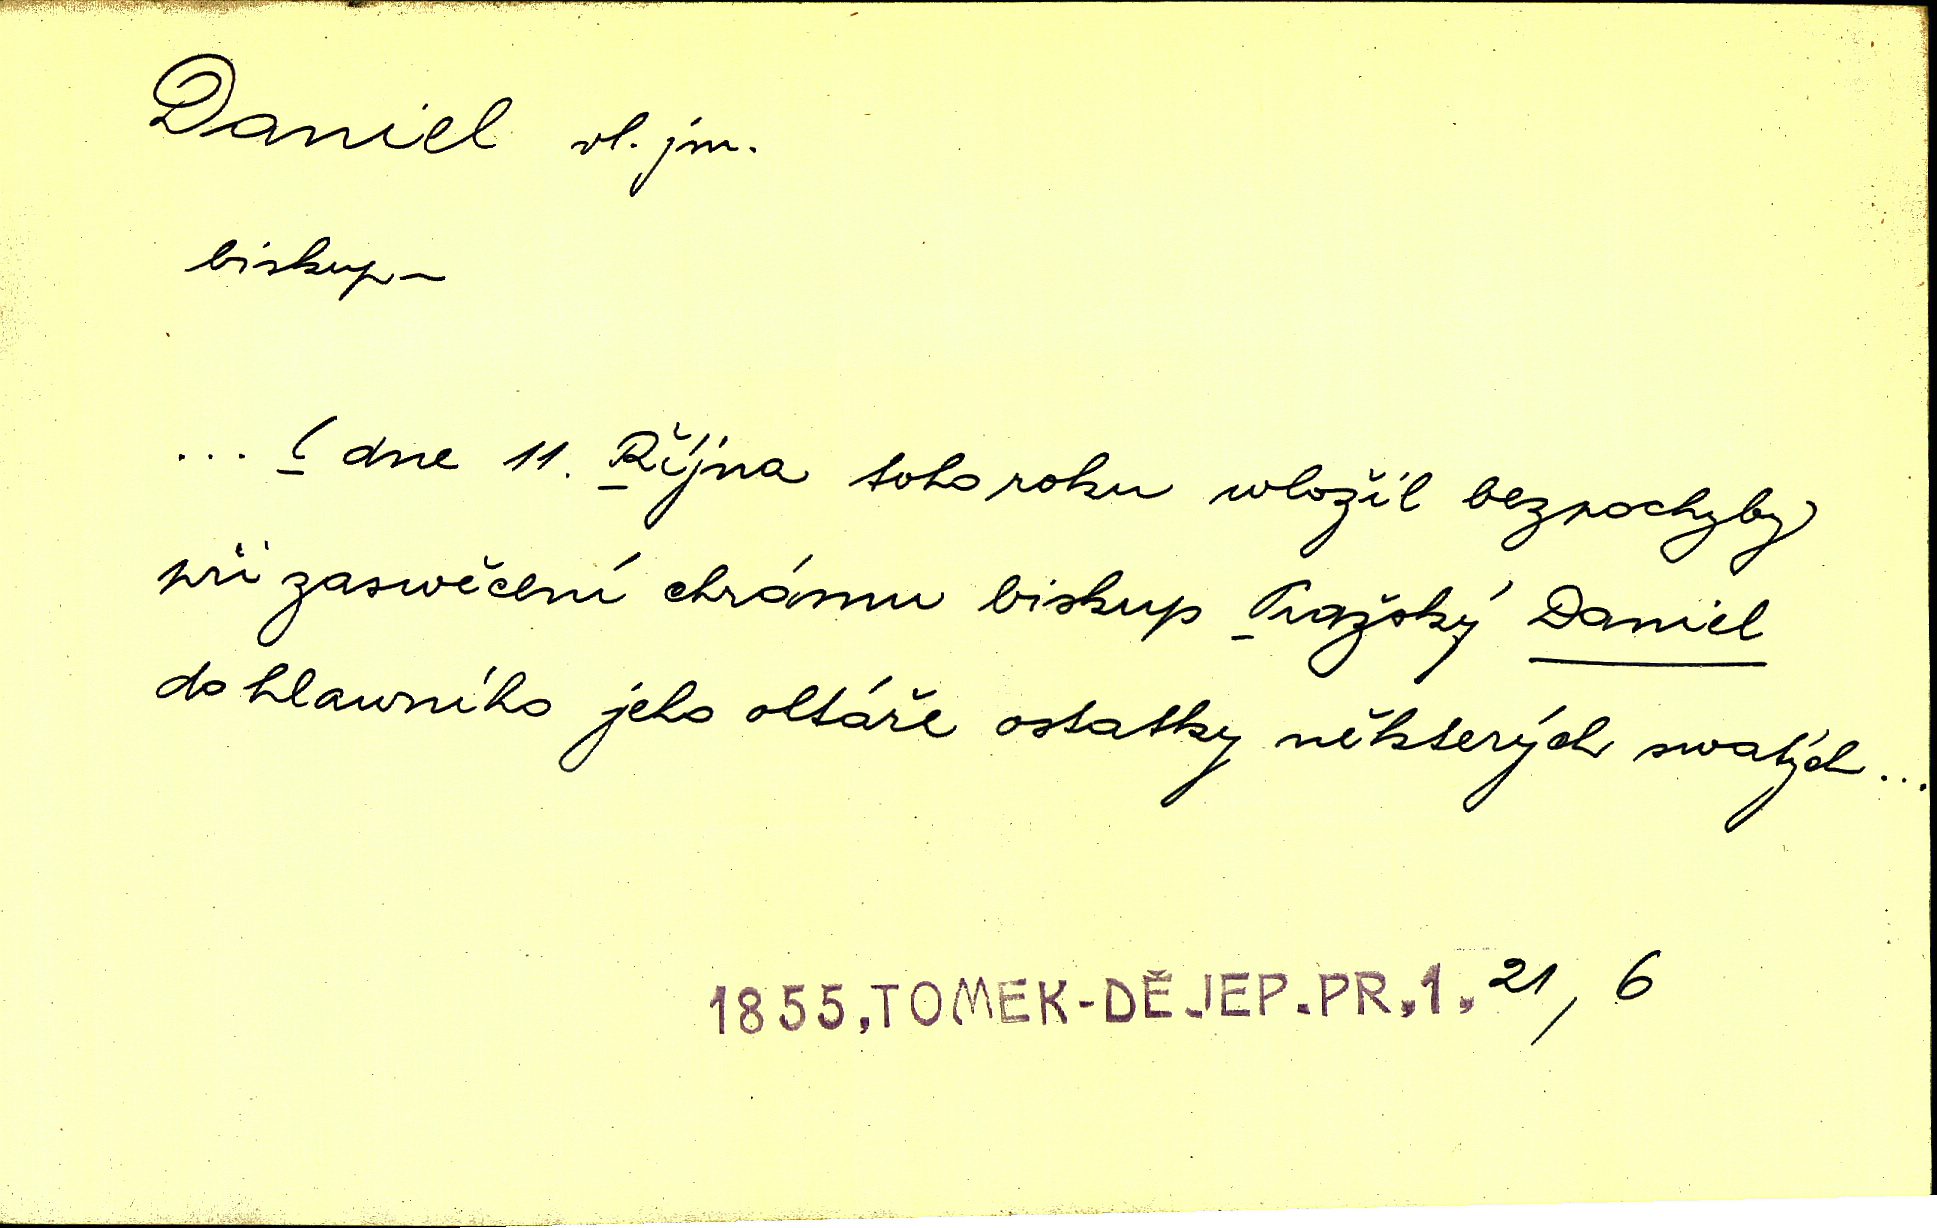 Daniel vl. jm.
biskup –
... ( dne 11. Října toho roku wložil bezpochyby
při zaswěcení chrámu biskup Pražský Daniel
do hlawního jeho oltáře ostatky některých swatých ...
1855, TOMEK-DĚJEP. PR, 1, 21, 6